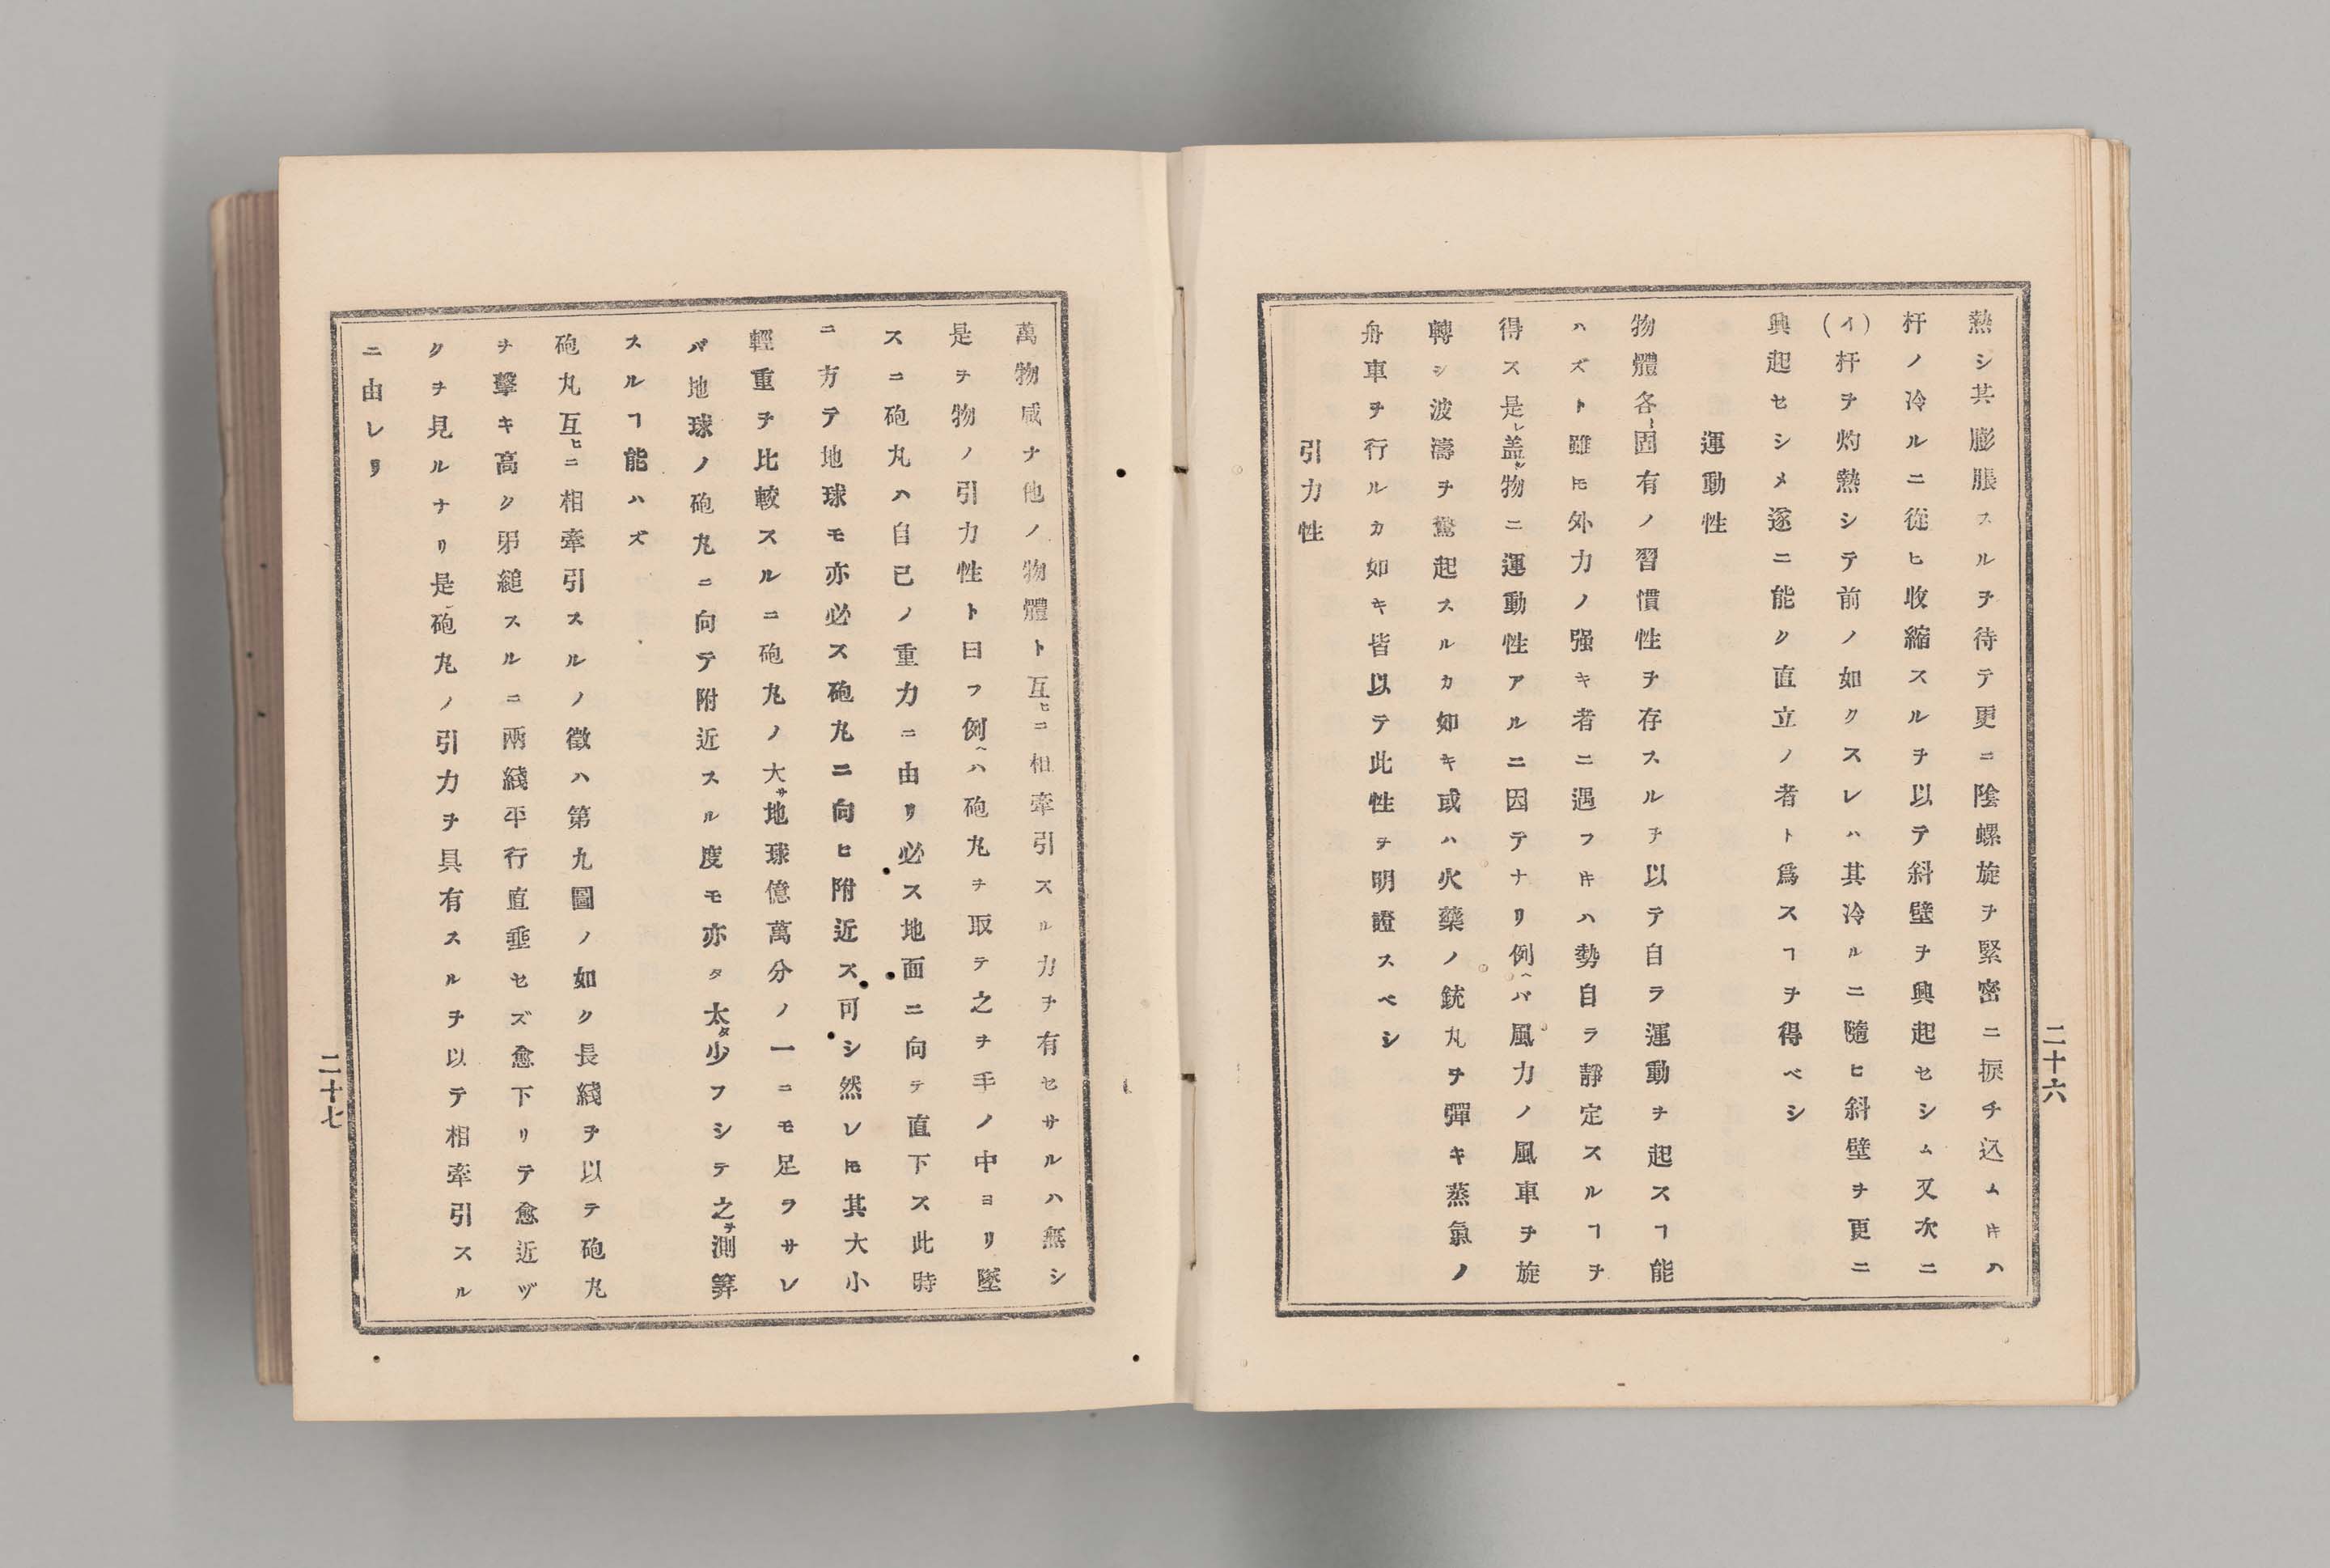 熱シ其膨脹スルヲ待テ更ニ陰螺旋ヲ緊密ニ捩チ込ムキハ
杆ノ冷ルニ從ヒ收縮スルヲ以テ斜壁ヲ興起セシム又次ニ
(イ)杆ヲ灼熱シテ前ノ如クスレハ其冷ルニ隨ヒ斜壁ヲ更ニ
興起セシメ遂ニ能ク直立ノ者ト爲スヿヲ得ベシ
運動性
物體各〻固有ノ習慣性ヲ存スルヲ以テ自ラ運動ヲ起スヿ能
ハズト雖𪜈外力ノ强キ者ニ遇フキハ勢自ラ靜定スルヿヲ
得ス是レ盖シ物ニ運動性アルニ因テナリ例ヘバ風力ノ風車ヲ旋
轉シ波濤ヲ驚起スルカ如キ或ハ火藥ノ銃丸ヲ彈キ蒸氣ノ
舟車ヲ行ルカ如キ皆以テ此性ヲ明證スベシ
引力性
二十六
萬物咸ナ他ノ物體ト互ヒニ相牽引スル力ヲ有セサルハ無シ
是ヲ物ノ引力性ト曰フ例ヘハ砲丸ヲ取テ之ヲ手ノ中ヨリ墜
スニ砲丸ハ自己ノ重力ニ由リ必ス地面ニ向テ直下ス此時
ニ方テ地球モ亦必ス砲丸ニ向ヒ附近ス可シ然レ𪜈其大小
輕重ヲ比較スルニ砲丸ノ大サ地球億萬分ノ一ニモ足ラサレ
バ地球ノ砲丸ニ向テ附近スル度モ亦タ太タ少フシテ之ヲ測算
スルヿ能ハズ
砲丸互ヒニ相牽引スルノ徵ハ第九圖ノ如ク長綫ヲ以テ砲丸
ヲ擊キ高ク弔縋スルニ兩綫平行直垂セズ愈下リテ愈近ヅ
クヲ見ルナリ是砲丸ノ引力ヲ具有スルヲ以テ相牽引スル
ニ由レリ
二十七